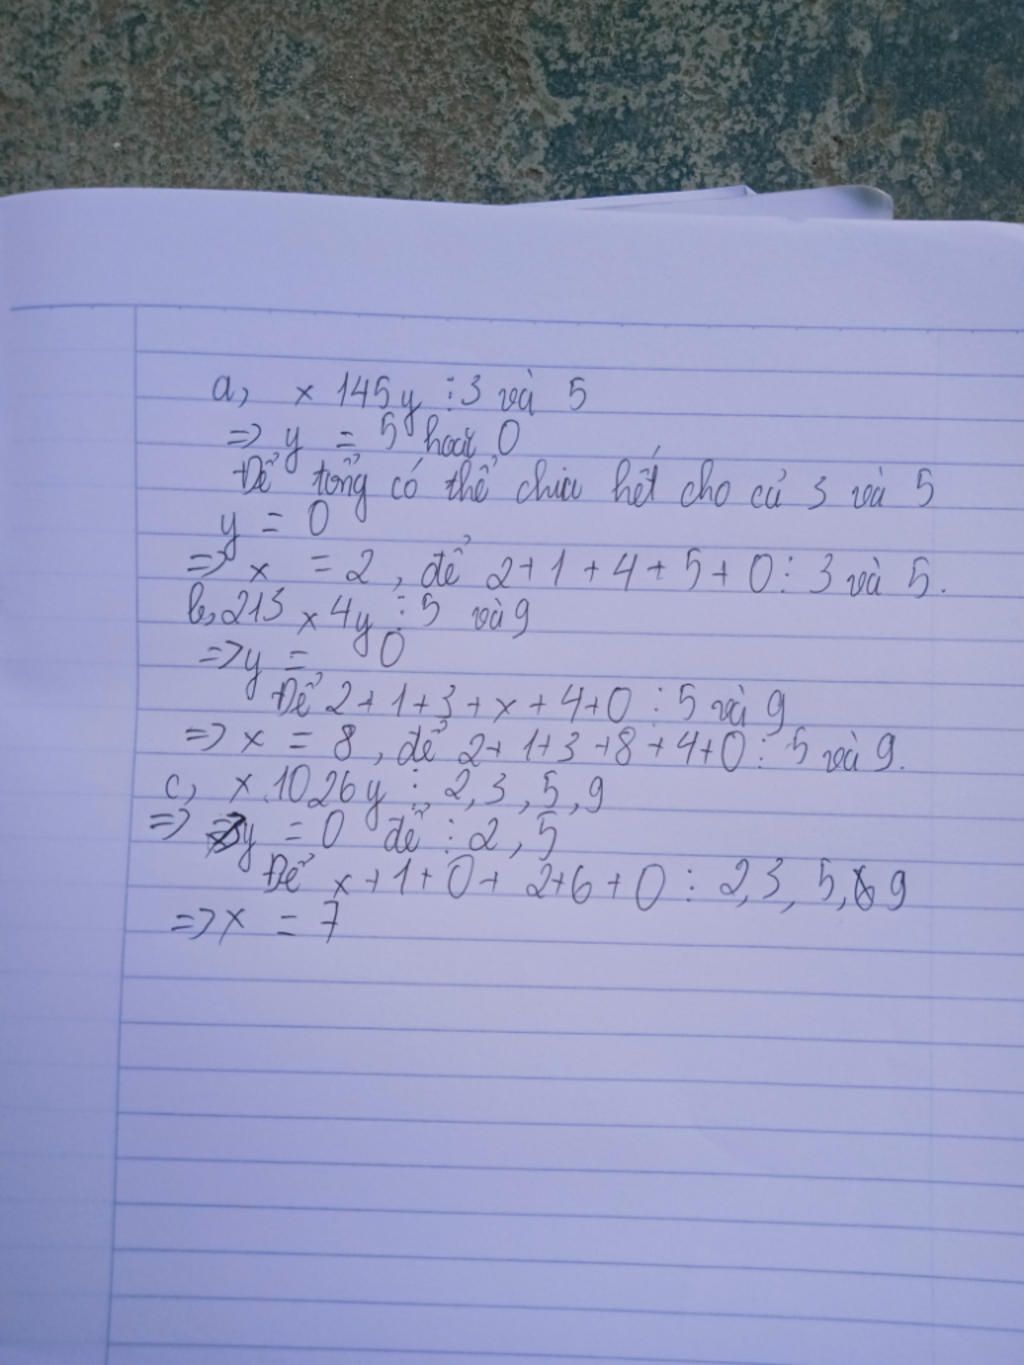 a, x 145y ⋮ 3 và 5
=> y = 5 hoặc 0
Để tổng có thể chia hết cho cả 3 và 5
y = 0
=> x = 2, để 2+1+4+5+0 ⋮ 3 và 5.
b, 213 x 4y ⋮ 5 và 9
=> y = 0
Để 2+1+3+x+4+0 ⋮ 5 và 9
=> x = 8, để 2+1+3+8+4+0 ⋮ 5 và 9.
c, x 1026y ⋮ 2,3,5,9
=> y = 0 để ⋮ 2,5
Để x+1+0+2+6+0 ⋮ 2,3,5,9
=> x = 7